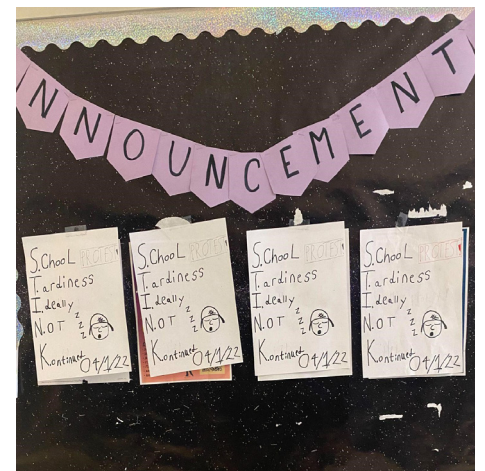 NNOUNCEMENT
S.chooL PROTEST
T.ardiness
I.deally
N.OT z z z
Kontinued 04/1/22
S.chooL PROTEST
T.ardiness
I.deally
N.OT z z z
Kontinued 04/1/22
S.chooL PROTEST
T.ardiness
I.deally
N.OT z z z
Kontinued 04/1/22
S.chooL PROTEST
T.ardiness
I.deally
N.OT z z z
Kontinued 04/1/22